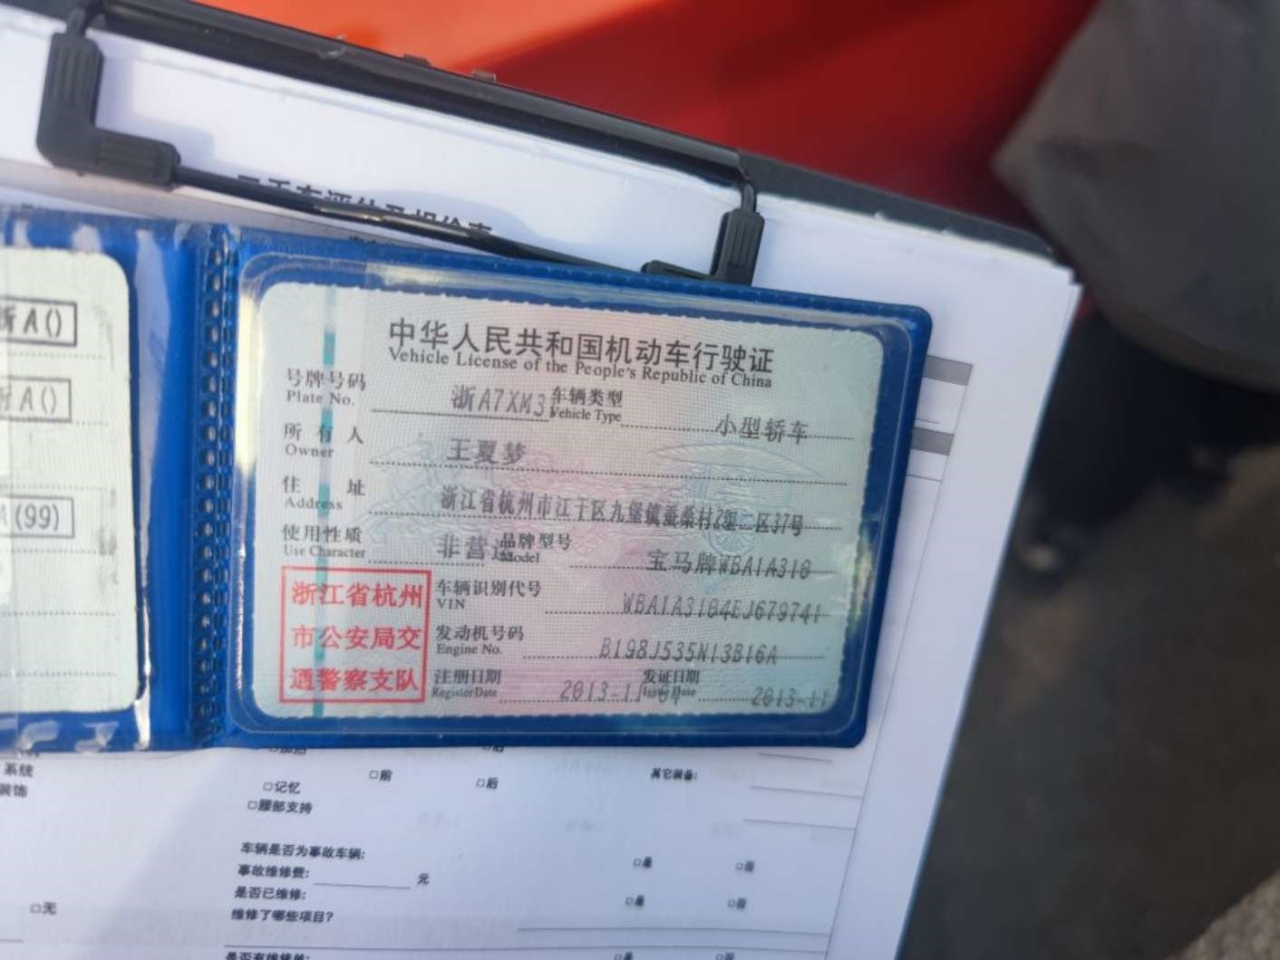 二手车评估及报价表
浙A()
A()
(99)
中华人民共和国机动车行驶证
Vehicle License of the People's Republic of China
号牌号码 浙A7XM3 车辆类型 小型轿车
Plate No. Vehicle Type
所有人 王夏梦
Owner
住址 浙江省杭州市江干区九堡镇蚕桑村2组二区37号
Address
使用性质 非营运 品牌型号 宝马牌WBA1A310
Use Character Model
浙江省杭州
市公安局交
通警察支队
车辆识别代号
VIN
发动机号码 B198J535N13B16A
Engine No.
注册日期 2013-11-04 发证日期 2013-11
Register Date Issue Date
系统
装饰
□前 □后 其它装备:
□记忆
□腰部支持
车辆是否为事故车辆: □是 □否
事故维修费: 元
是否已维修: □是 □否
□无
维修了哪些项目?
是否有维修单: □是 □否